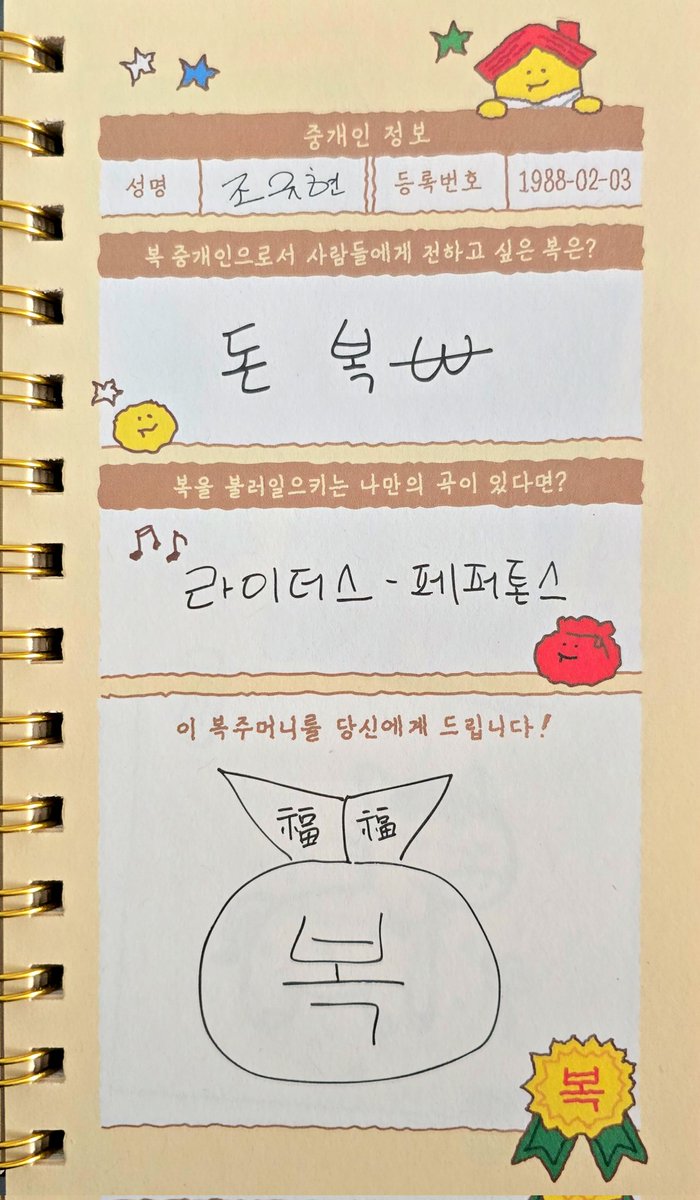 중개인 정보
성명 조규현 등록번호 1988-02-03
복 중개인으로서 사람들에게 전하고 싶은 복은?
돈 복 ₩
복을 불러일으키는 나만의 곡이 있다면?
라이더스 - 페퍼톤스
이 복주머니를 당신에게 드립니다!
福 福
복
복